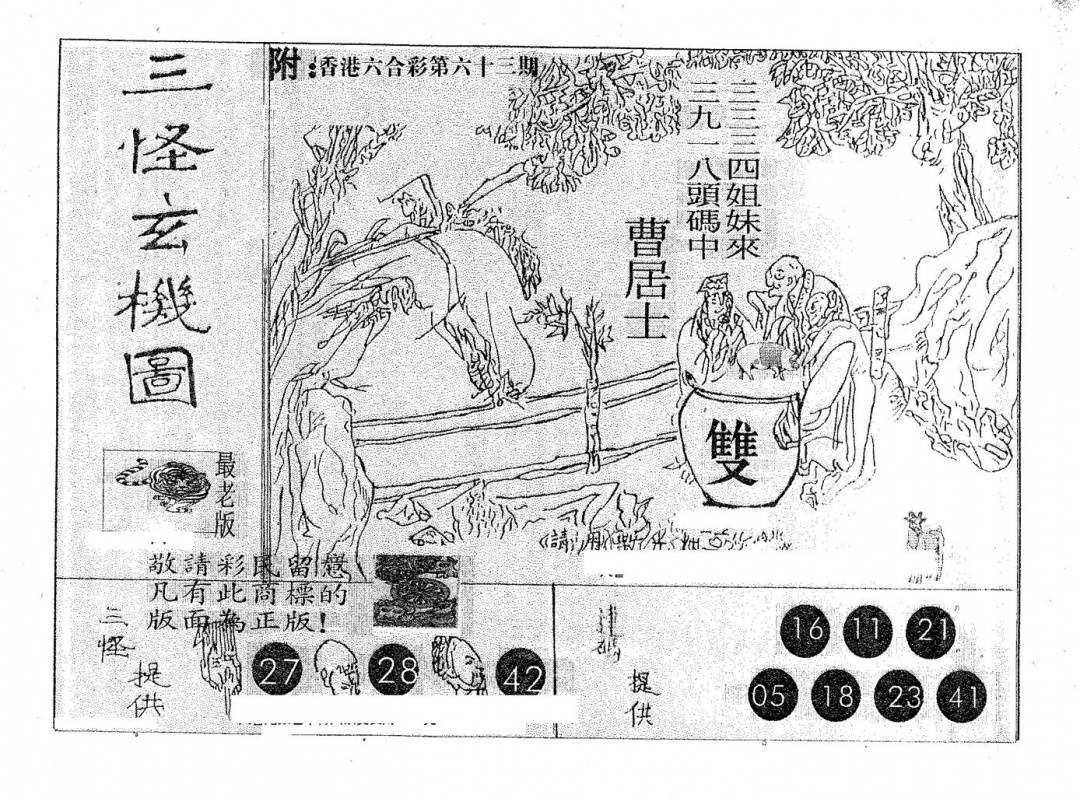 三怪玄機圖
附：香港六合彩第六十三期
二三三四姐妹來
三九一八頭碼中
曹居士
雙
最老版
敬請彩民留意
凡有此商標的
版面為正版！
三怪
提供
27 28 42
提供
16 11 21
05 18 23 41